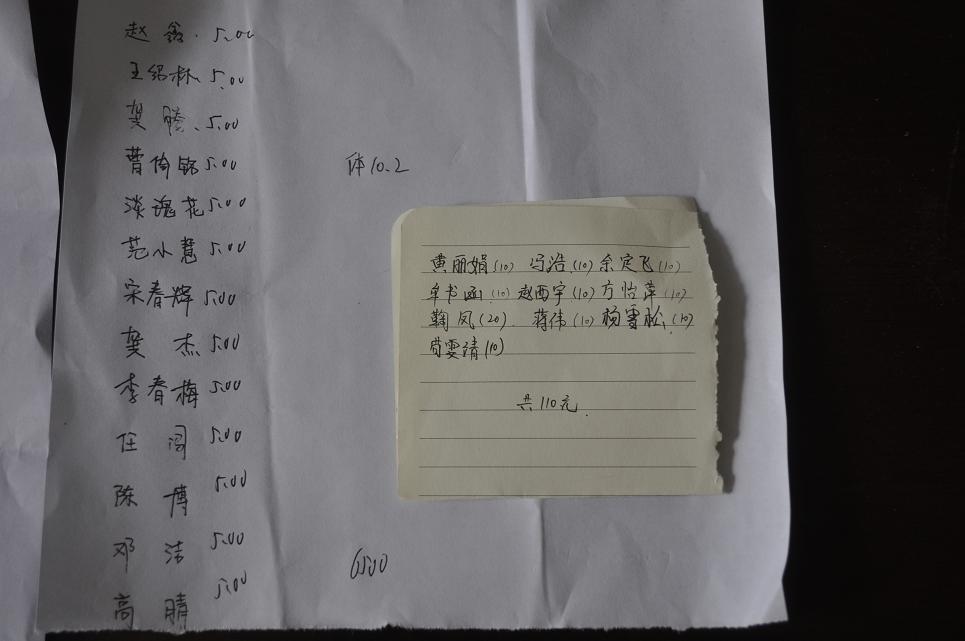 赵鑫. 5.00
王绍林 5.00
龚腾、5.00
曹倚铭 5.00
淡魂花 5.00
范小慧 5.00
宋春辉 5.00
龚杰 5.00
李春梅 5.00
任闯 5.00
陈博 5.00
邓洁 5.00
高晴 5.00
体10.2
6500
黄丽娟(10) 冯浩(10) 余定飞(10)
牟书函(10) 赵西宇(10) 方怡萍(10)
鞠凤(20). 蒋伟(10) 杨雪松(10)
苟雯靖(10)
共110元.